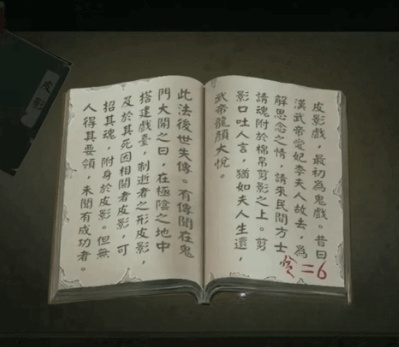 皮影戲，最初為鬼戲。昔日
漢武帝愛妃李夫人故去，為
解思念之情，請來民間方士
請魂附於棉帛剪影之上。剪
影口吐人言，猶如夫人生還，
武帝龍顏大悅。
=6
此法後世失傳。有傳聞在鬼
門大開之日，在極陰之地中
搭建戲臺，制逝者之形皮影，
及於其死因相關者皮影，可
招其魂，附身於皮影。但無
人得其要領，未聞有成功者。
皮影